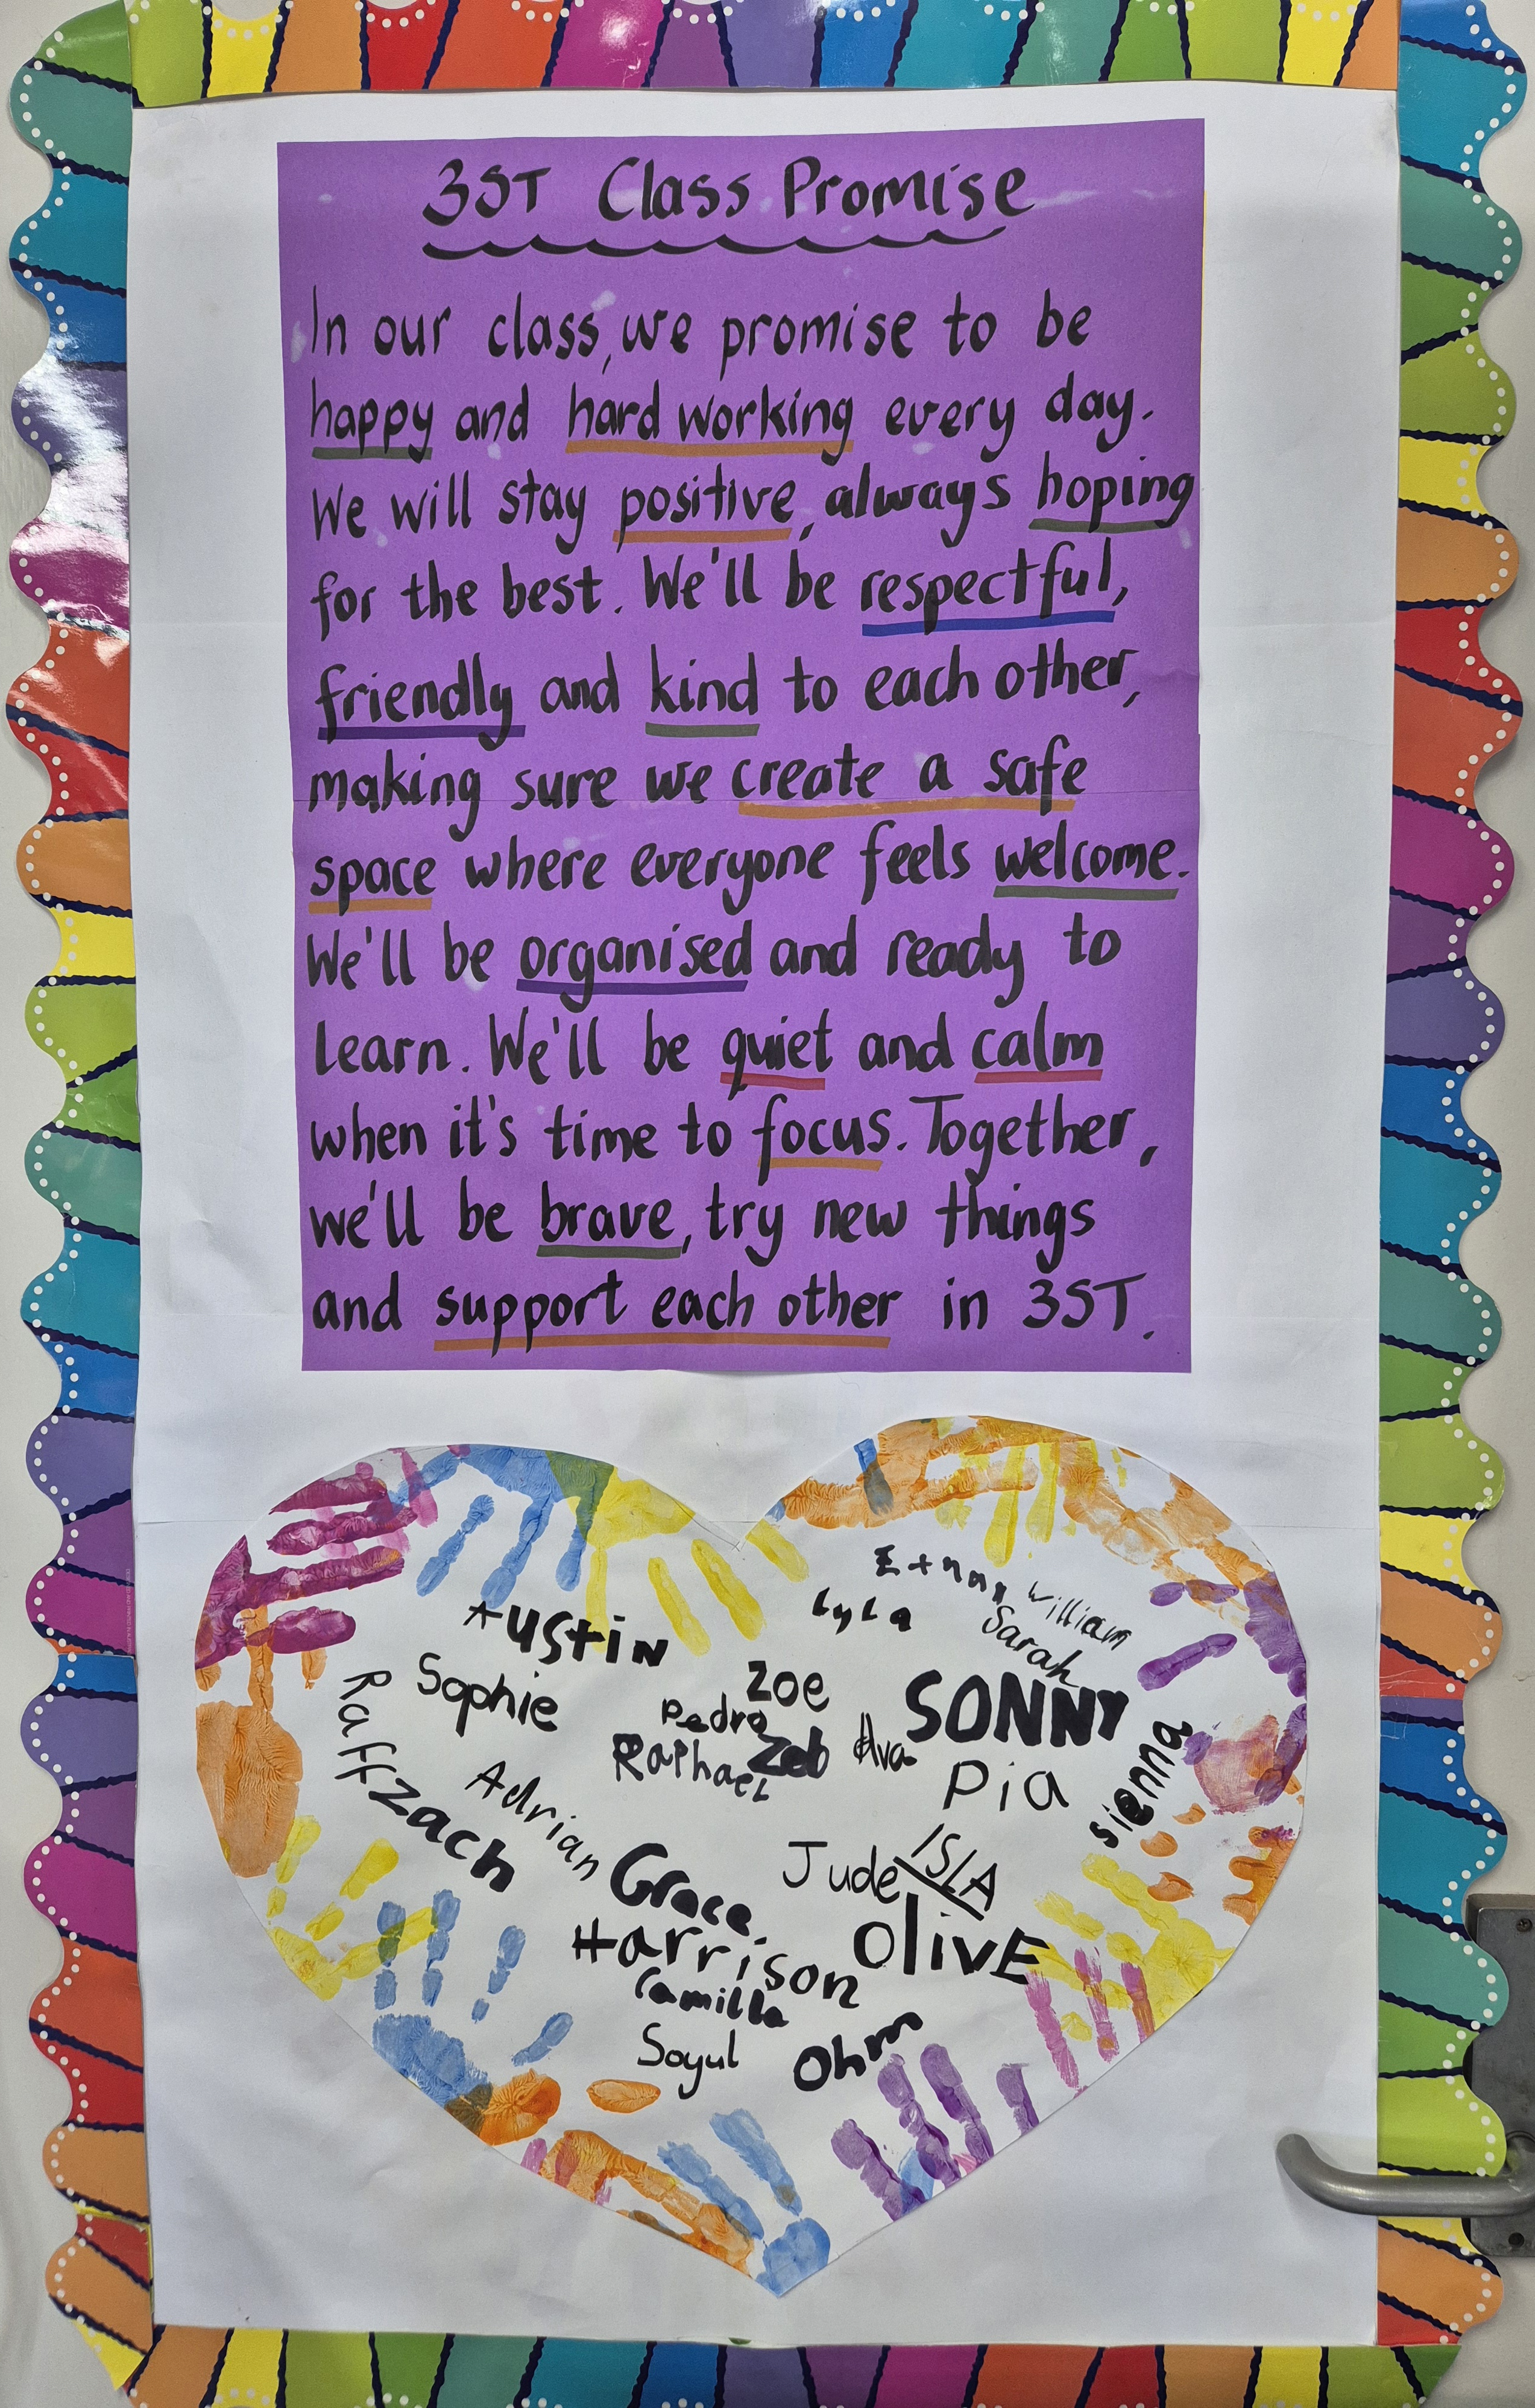 3ST Class Promise
In our class, we promise to be
happy and hard working every day.
We will stay positive, always hoping
for the best. We'll be respectful,
friendly and kind to each other,
making sure we create a safe
space where everyone feels welcome.
We'll be organised and ready to
learn. We'll be quiet and calm
when it's time to focus. Together,
we'll be brave, try new things
and support each other in 3ST.
Austin
Lyla
William
Sarah
Sophie
Zoe
SONNY
Raff
Pedro
Raphael
Zeb
Ava
Pia
sienna
zach
Adrian
Grace
Jude
ISLA
Harrison
OlivE
Camilla
Soyul
Ohm